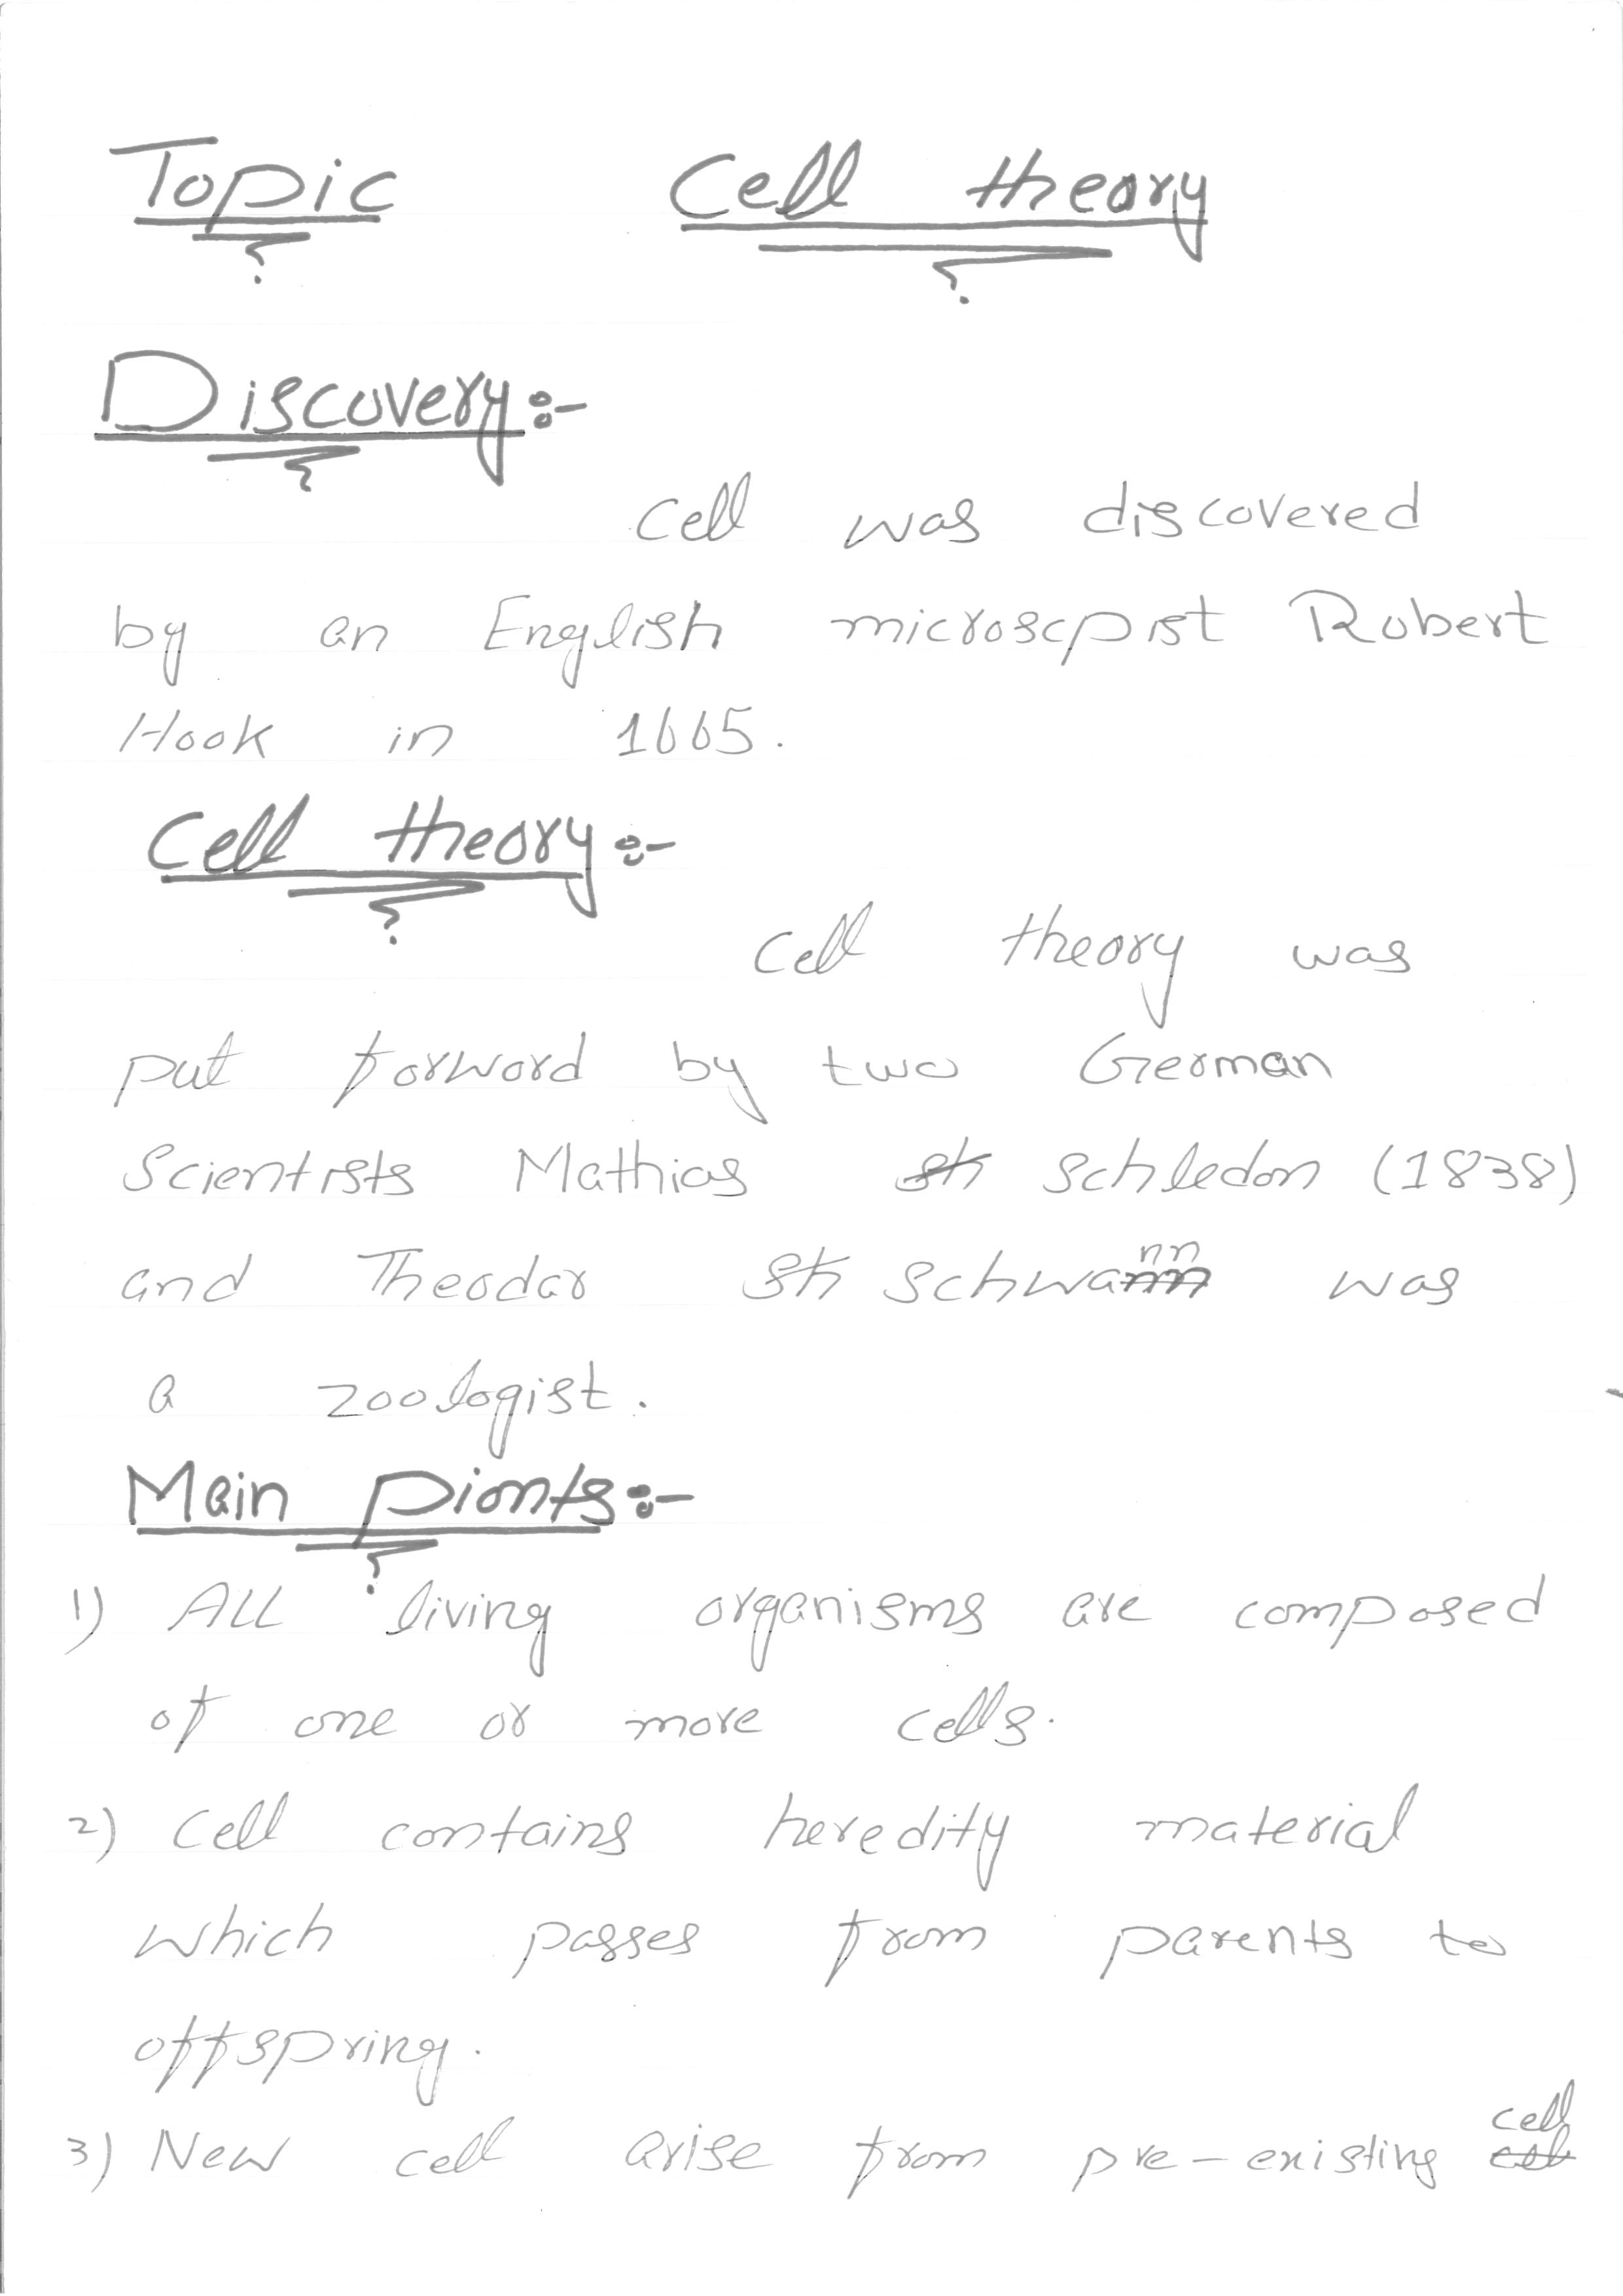 Topic Cell theory
Discovery:-
Cell was discovered
by an English microscpist Robert
Hook in 1665.
Cell theory:-
Cell theory was
put forward by two German
Scientists Mathias sh Schledon (1838)
and Theodar Sh Schwann was
a zoologist.
Main pionts:-
1) ALL living organisms are composed
of one or more cells.
2) Cell contains heredity material
which passes from parents to
offspring.
3) New cell arise from pre-existing cell